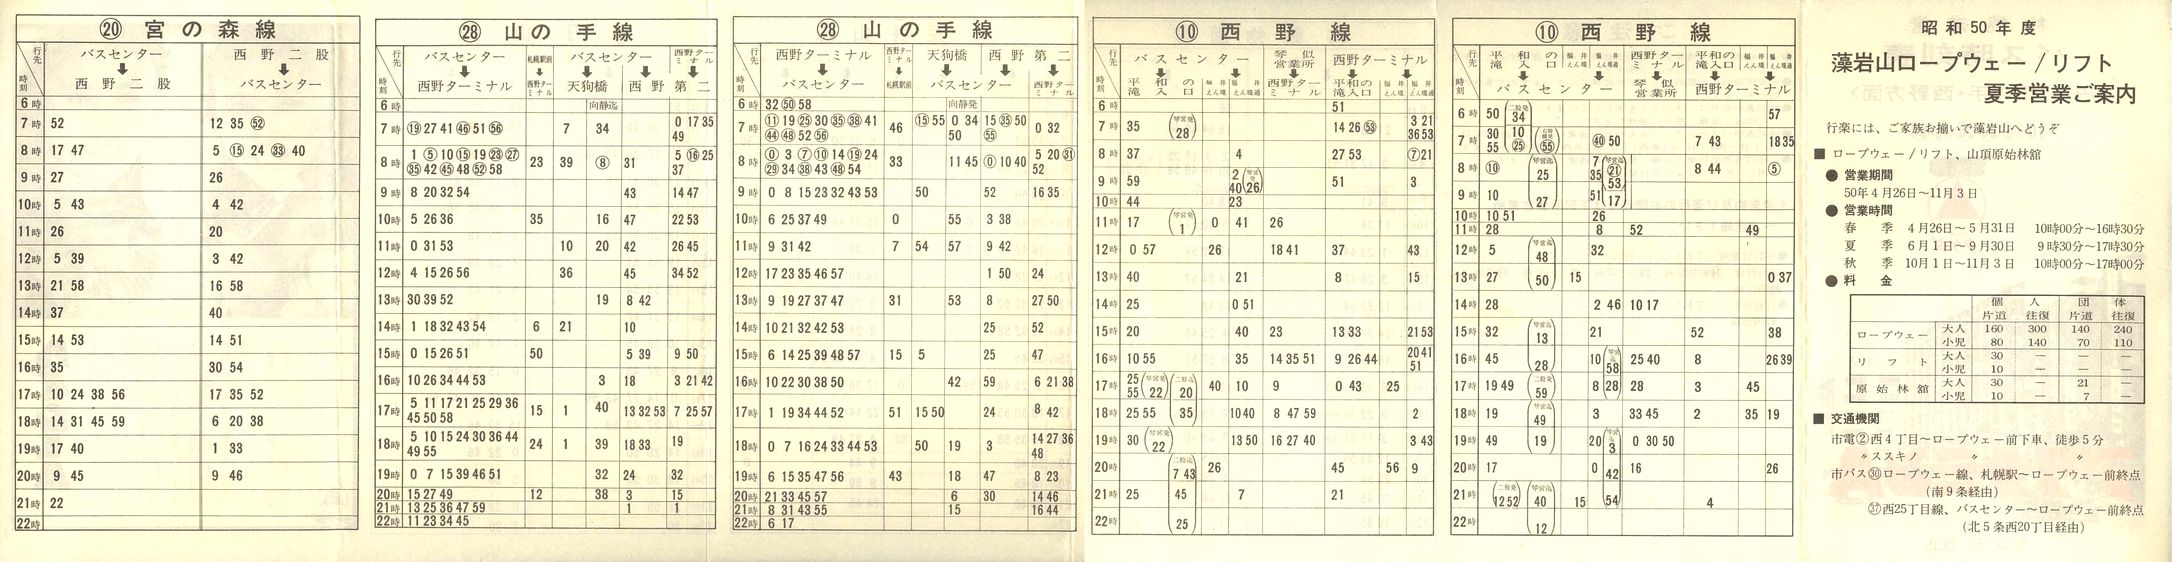 ⑳ 宮の森線
行先
時刻
バスセンター
↓
西野二股
西野二股
↓
バスセンター
6時
7時 52 12 35 ㊾
8時 17 47 5 ⑮ 24 ㉝ 40
9時 27 26
10時 5 43 4 42
11時 26 20
12時 5 39 3 42
13時 21 58 16 58
14時 37 40
15時 14 53 14 51
16時 35 30 54
17時 10 24 38 56 17 35 52
18時 14 31 45 59 6 20 38
19時 17 40 1 33
20時 9 45 9 46
21時 22
22時
㉘ 山の手線
行先
時刻
バスセンター
↓
西野ターミナル
札幌駅前
↓
西野ターミナル
バスセンター
↓
天狗橋
西野ターミナル
↓
西野第二
6時 向静迄
7時 ⑲ 27 41 ㊻ 51 56 7 34 0 17 35 49
8時 1 ⑤ 10 ⑮ 19 ㉓ ㉗ ㉟ 42 ㊺ 48 52 58 23 39 ⑧ 31 5 ⑯ 25 37
9時 8 20 32 54 43 14 47
10時 5 26 36 35 16 47 22 53
11時 0 31 53 10 20 42 26 45
12時 4 15 26 56 36 45 34 52
13時 30 39 52 19 8 42
14時 1 18 32 43 54 6 21 10
15時 0 15 26 51 50 5 39 9 50
16時 10 26 34 44 53 3 18 3 21 42
17時 5 11 17 21 25 29 36 45 50 58 15 1 40 13 32 53 7 25 57
18時 5 10 15 24 30 36 44 49 55 24 1 39 18 33 19
19時 0 7 15 39 46 51 32 24 32
20時 15 27 49 12 38 3 15
21時 13 25 36 47 59 1 1
22時 11 23 34 45
㉘ 山の手線
行先
時刻
西野ターミナル
↓
バスセンター
西野ターミナル
↓
札幌駅前
天狗橋
↓
バスセンター
西野第二
↓
西野ターミナル
6時 32 ㊿ 58 向静発
7時 ⑪ 19 ㉕ 30 ㉟ ㊳ 41 ㊹ ㊽ 52 56 46 ⑮ 55 0 34 50 15 ㉟ 50 55 0 32
8時 ⓪ 3 ⑦ ⑩ 14 ⑲ 24 ㉙ 34 ㊳ 43 ㊽ 54 33 11 45 ⓪ 10 40 5 20 ㉛ 52
9時 0 8 15 23 32 43 53 50 52 16 35
10時 6 25 37 49 0 55 3 38
11時 9 31 42 7 54 57 9 42
12時 17 23 35 46 57 1 50 24
13時 9 19 27 37 47 31 53 8 27 50
14時 10 21 32 42 53 25 52
15時 6 14 25 39 48 57 15 5 25 47
16時 10 22 30 38 50 42 59 6 21 38
17時 1 19 34 44 52 51 15 50 24 8 42
18時 0 7 16 24 33 44 53 50 19 3 14 27 36 48
19時 6 15 35 47 56 43 18 47 8 23
20時 21 33 45 57 6 30 14 46
21時 8 31 43 55 15 16 44
22時 6 17
⑩ 西野線
行先
時刻
バスセンター
↓
平和の滝入口
福井えん堤
琴似営業所
↓
西野ターミナル
西野ターミナル
↓
平和の滝入口
福井えん堤
福井えん堤通
6時 51
7時 35 (琴営発 28) 14 26 53 3 21 36 53
8時 37 4 27 53 ⑦ 21
9時 59 2 40 (琴営発 26) 51 3
10時 44 23
11時 17 (琴営発 1) 0 41 26
12時 0 57 26 18 41 37 43
13時 40 21 8 15
14時 25 0 51
15時 20 40 23 13 33 21 53
16時 10 55 35 14 35 51 9 26 44 20 41 51
17時 25 55 (琴営発 22) (二股発 20) 40 10 9 0 43 25
18時 25 55 35 10 40 8 47 59 2
19時 30 (琴営発 22) 13 50 16 27 40 3 43
20時 (二股迄 7 43) 26 45 56 9
21時 25 45 7 21
22時 25
⑩ 西野線
行先
時刻
平和の滝入口
福井えん堤
福井えん堤通
↓
バスセンター
西野ターミナル
↓
琴似営業所
平和の滝入口
福井えん堤
福井えん堤通
↓
西野ターミナル
6時 50 (二股発 34) 57
7時 30 55 10 ㉕ 55 ㊵ 50 7 43 18 35
8時 ⑩ (琴営迄 25) 7 35 (琴営迄 ㉑ 53) 8 44 ⑤
9時 10 27 51 17
10時 10 51 26
11時 28 8 52 49
12時 5 (琴営迄 48) 32
13時 27 50 15 0 37
14時 28 2 46 10 17
15時 32 (琴営迄 13) 21 52 38
16時 45 28 10 (琴営迄 58) 25 40 8 26 39
17時 19 49 (二股発 59) 8 28 28 3 45
18時 19 (琴営迄 49) 3 33 45 2 35 19
19時 49 19 20 (琴営迄 3) 0 30 50
20時 17 0 42 16 26
21時 (二股発 12 52) (琴営迄 40) 15 54 4
22時 12
昭和50年度
藻岩山ロープウェー/リフト
夏季営業ご案内
行楽には、ご家族お揃いで藻岩山へどうぞ
■ ロープウェー/リフト、山頂原始林館
● 営業期間
50年4月26日〜11月3日
● 営業時間
春季 4月26日〜5月31日 10時00分〜16時30分
夏季 6月1日〜9月30日 9時30分〜17時30分
秋季 10月1日〜11月3日 10時00分〜17時00分
● 料金
個人 団体
片道 往復 片道 往復
ロープウェー 大人 160 300 140 240
小児 80 140 70 110
リフト 大人 30 — — —
小児 10 — — —
原始林館 大人 30 — 21 —
小児 10 — 7 —
■ 交通機関
市電②西4丁目〜ロープウェー前下車、徒歩5分
〃ススキノ 〃 〃
市バス㉚ロープウェー線、札幌駅〜ロープウェー前終点
(南9条経由)
㊲西25丁目線、バスセンター〜ロープウェー前終点
(北5条西20丁目経由)